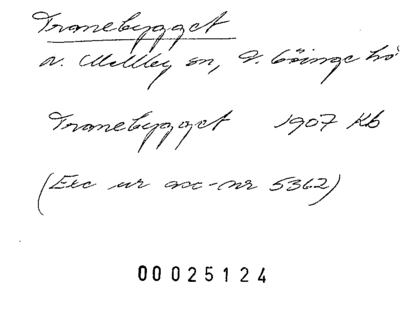 Tranebygget
N. Mellby sn, V. Göinge hd
Tranebygget 1907 Kb
(Exc ur acc-nr 5362)
00025124